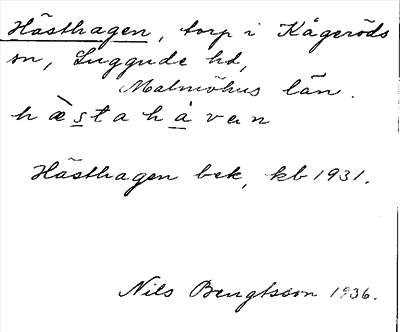 Hästhagen, torp i Kågeröds
sn, Luggude hd,
Malmöhus län.
hæ̀stahåvən
Hästhagen bek, kb 1931.
Nils Bengtsson 1936.